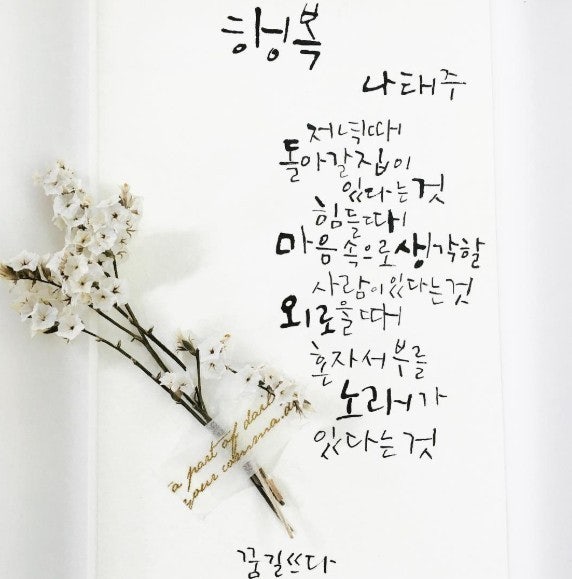 행복
나태주
저녁때
돌아갈 집이
있다는 것
힘들때
마음속으로 생각할
사람이 있다는 것
외로울때
혼자서 부를
노래가
있다는 것
a part of
your comma
꿈길쓰다